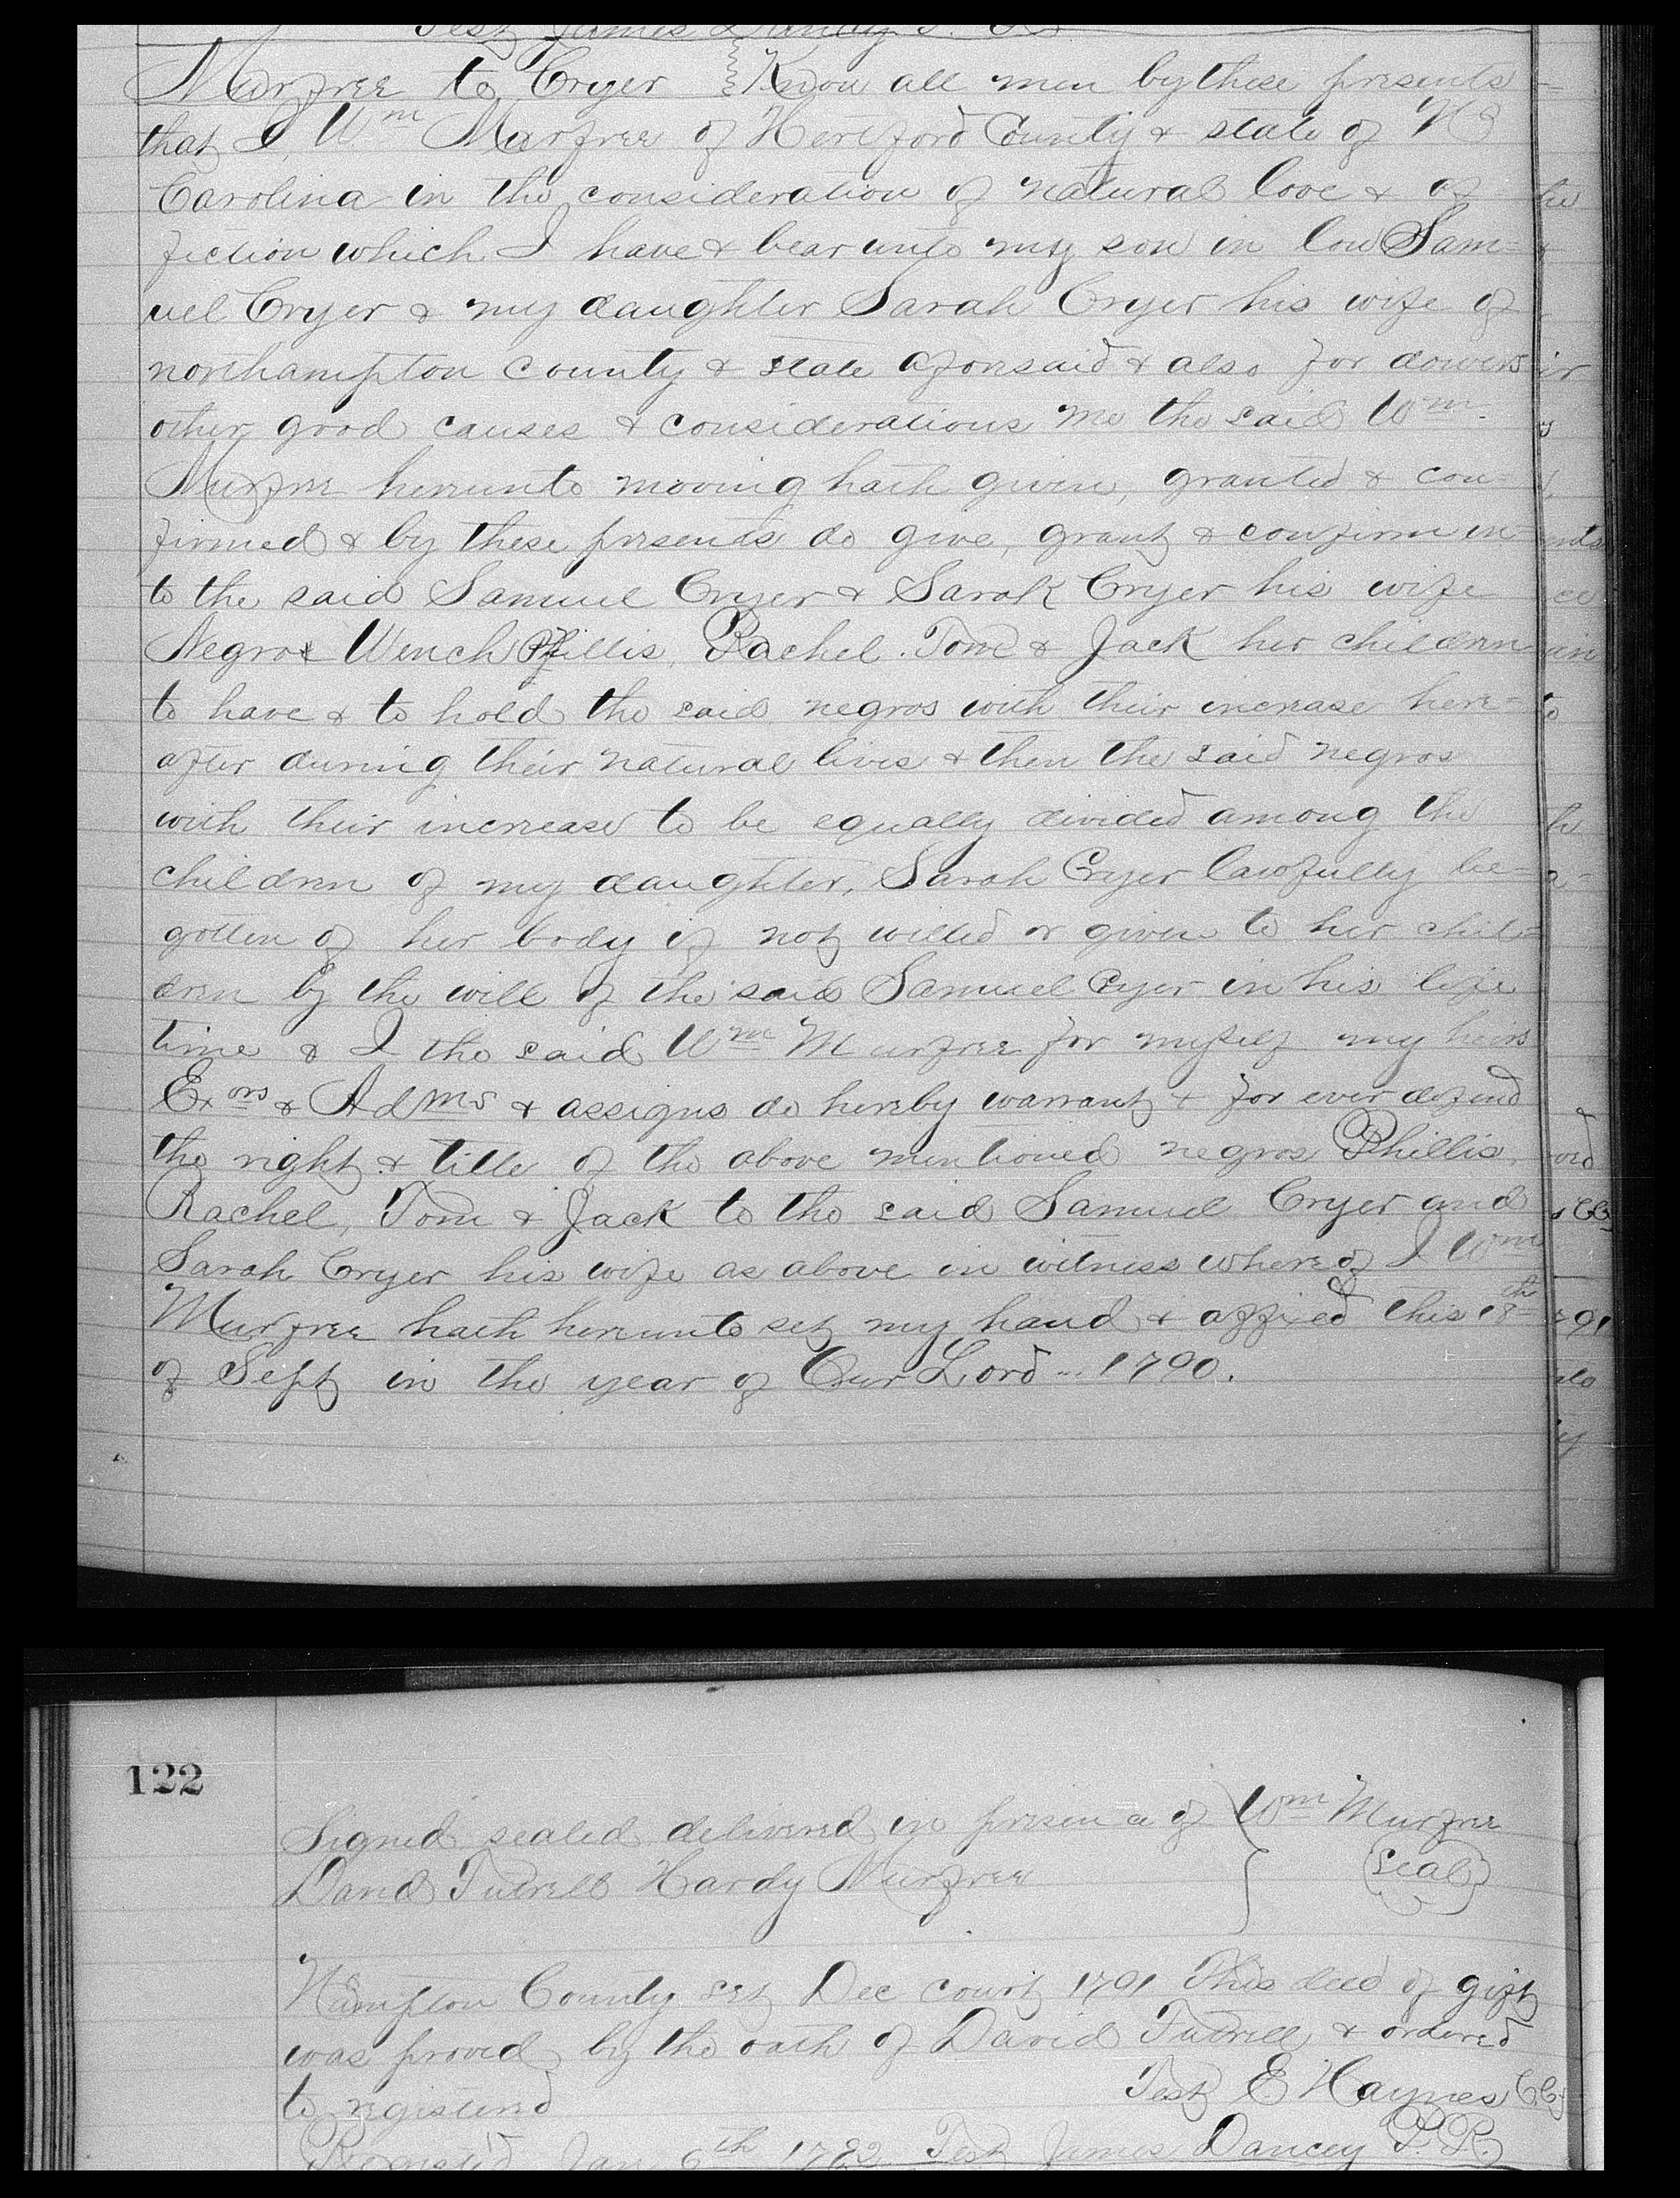 Test James Dancy P. R.
Murfree to Cryer } Know all men by these presents
that I, Wm Murfree of Hertford County & state of N
Carolina in the consideration of natural love & af
fiction which I have & bear unto my son in low Sam-
uel Cryer & my daughter Sarah Cryer his wife of
northampton County & state aforesaid & also for
other good causes & considerations me the said Wm
Murfree hereunto moving hath given, granted & con-
firmed & by these presents do give, grant & confirm un
to the said Samuel Cryer & Sarah Cryer his wife
Negroe Wench Phillis, Rachel. Tom & Jack her children
to have & to hold the said negros with their increase here-
after during their natural lives & then the said negros
with their increase to be equally divided among the
children of my daughter, Sarah Cryer lawfully be-
gotten of her body if not willed or given to her chil-
dren by the will of the said Samuel Cryer in his life
time & I the said Wm Murfree for myself my heirs
Exors & Adms & assigns do hereby warrant & for ever defend
the right & title of the above mentioned negros Phillis,
Rachel, Tom & Jack to the said Samuel Cryer and
Sarah Cryer his wife as above in witness whereof I Wm
Murfree hath hereunto set my hand & affixed this 18th
of Sept in the year of Our Lord - 1790.
122
Signed sealed delivered in presence of } Wm Murfree
David Tutrell Hardy Murfree } Seal
N Hampton County Sct Dec court 1791 This deed of gift
was proved by the oath of David Futrell & ordered
to registered
Test E Haynes CC
Registd Jan 6th 1792 Test James Dancy P. R.